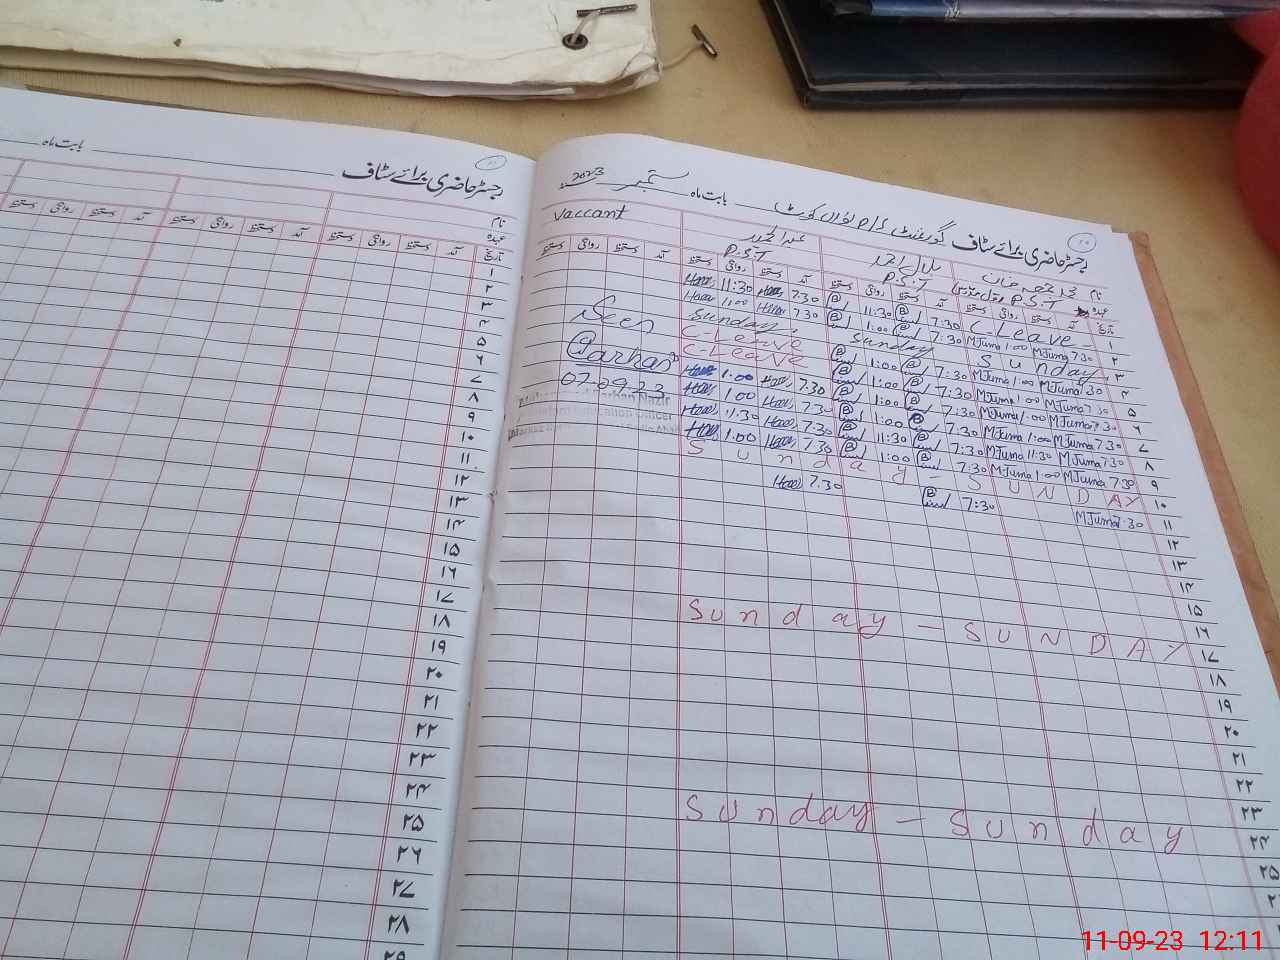 رجسٹر حاضری برائے سٹاف
بابت ماہ
نام
عہدہ
تاریخ آمد دستخط روانگی دستخط آمد دستخط روانگی دستخط
۱
۲
۳
۴
۵
۶
۷
۸
۹
۱۰
۱۱
۱۲
۱۳
۱۴
۱۵
۱۶
۱۷
۱۸
۱۹
۲۰
۲۱
۲۲
۲۳
۲۴
۲۵
۲۶
۲۷
۲۸
۲۹
رجسٹر حاضری برائے سٹاف گورنمنٹ بابت ماہ ستمبر 2023
نام محمد جمعہ خان بلال احمد vaccant
عہدہ P.S.T P.S.T P.S.T
تاریخ آمد دستخط روانگی دستخط آمد دستخط روانگی دستخط آمد دستخط روانگی دستخط آمد دستخط روانگی دستخط
۱ C-Leave 7:30 11:30 7:30 11:30
۲ MJuma 7:30 MJuma 1:00 7:30 1:00 7:30 1:00
۳ Sunday Sunday Sunday
۴ MJuma 7:30 MJuma 1:00 7:30 1:00 C-Leave
۵ MJuma 7:30 MJuma 1:00 7:30 1:00 C-Leave
۶ MJuma 7:30 MJuma 1:00 7:30 1:00 7:30 1:00
۷ MJuma 7:30 MJuma 1:00 7:30 1:00 7:30 1:00
۸ MJuma 7:30 MJuma 11:30 7:30 11:30 7:30 11:30
۹ MJuma 7:30 MJuma 1:00 7:30 1:00 7:30 1:00
۱۰ Sunday - SUNDAY
۱۱ MJuma 7:30 7:30 7:30
۱۲
۱۳
۱۴
۱۵
۱۶
۱۷ Sunday - SUNDAY
۱۸
۱۹
۲۰
۲۱
۲۲
۲۳
۲۴ Sunday - Sunday
۲۵
Seen
07-09-23
Education Officer
11-09-23 12:11